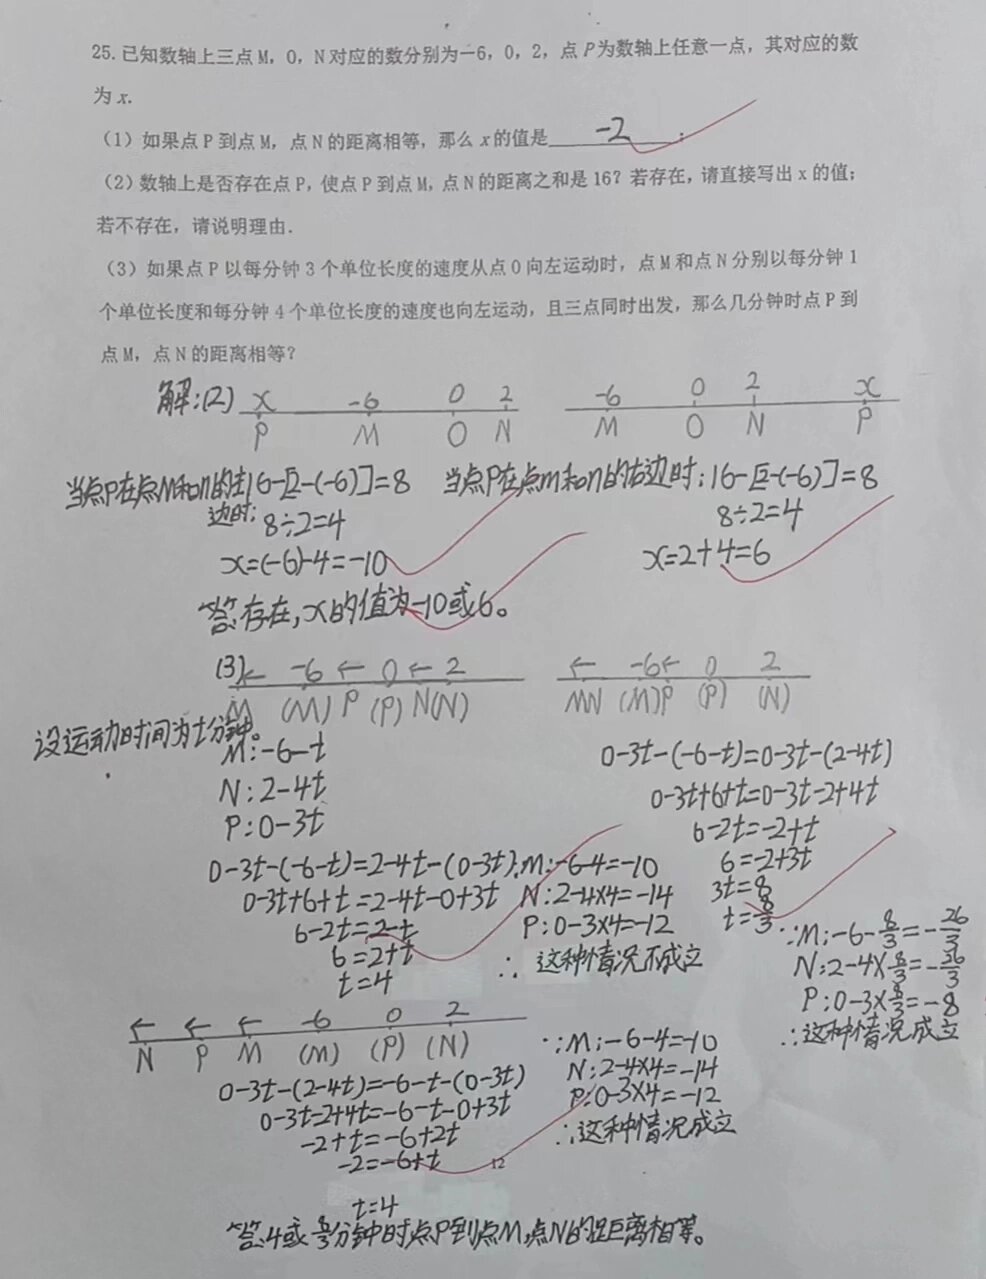 25.已知数轴上三点M，O，N对应的数分别为—6，0，2，点P为数轴上任意一点，其对应的数
为x.
（1）如果点P到点M，点N的距离相等，那么x的值是 -2 ；
（2）数轴上是否存在点P，使点P到点M，点N的距离之和是16？若存在，请直接写出x的值；
若不存在，请说明理由.
（3）如果点P以每分钟3个单位长度的速度从点O向左运动时，点M和点N分别以每分钟1
个单位长度和每分钟4个单位长度的速度也向左运动，且三点同时出发，那么几分钟时点P到
点M，点N的距离相等？
解:(2) x -6 0 2
P M O N
-6 0 2 x
M O N P
当点P在点M和n的左16-[2-(-6)]=8
边时:
8÷2=4
x=(-6)-4=-10
当点P在点m和n的右边时:16-[2-(-6)]=8
8÷2=4
x=2+4=6
答:存在,x的值为-10或6。
(3)← -6 ← 0 ← 2
M (M) P (P) N(N)
← -6← 0 2
MN (M)P (P) (N)
设运动时间为t分钟。
M:-6-t
N:2-4t
P:0-3t
0-3t-(-6-t)=2-4t-(0-3t)
0-3t+6+t=2-4t-0+3t
6-2t=2-t
6=2+t
t=4
∵M:-6-4=-10
N:2-4×4=-14
P:0-3×4=-12
∴这种情况不成立
0-3t-(-6-t)=0-3t-(2-4t)
0-3t+6+t=0-3t-2+4t
6-2t=-2+t
6=-2+3t
3t=8
t=8/3
∵M:-6-8/3=-26/3
N:2-4×8/3=-26/3
P:0-3×8/3=-8
∴这种情况成立
← ← ← -6 0 2
N P M (M) (P) (N)
0-3t-(2-4t)=-6-t-(0-3t)
0-3t-2+4t=-6-t-0+3t
-2+t=-6+2t
-2=-6+t
t=4
∵M:-6-4=-10
N:2-4×4=-14
P:0-3×4=-12
∴这种情况成立
12
答:4或8/3分钟时点P到点M,点N的距离相等。